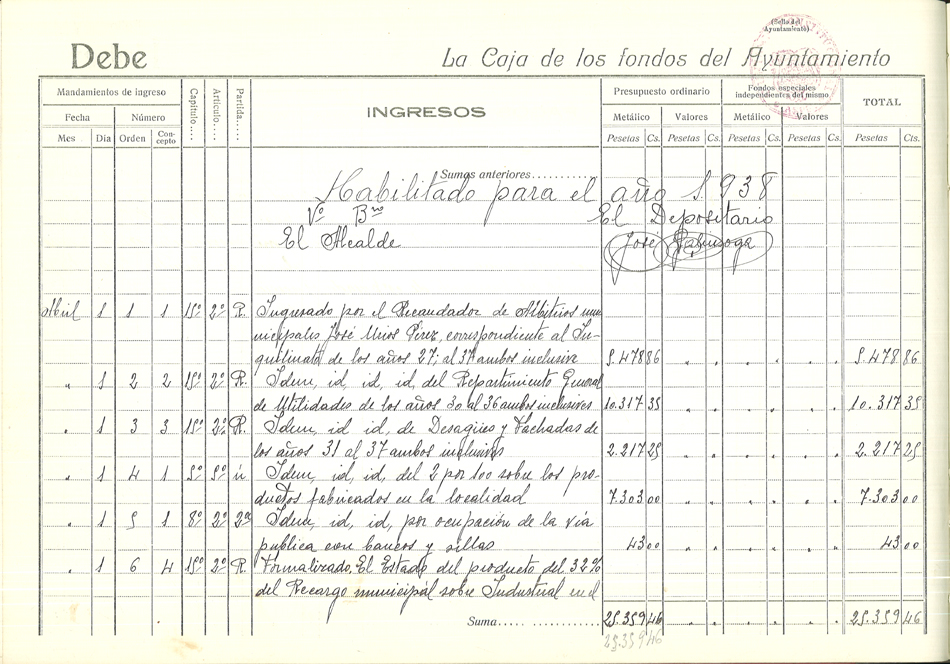 (Sello del
Ayuntamiento)
Debe
La Caja de los fondos del Ayuntamiento
Mandamientos de ingreso
Fecha Número
Mes Día Orden Con-
cepto
Capítulo....
Artículo....
Partida.....
INGRESOS
Presupuesto ordinario
Metálico Valores
Pesetas Cs. Pesetas Cs.
Fondos especiales
independientes del mismo
Metálico Valores
Pesetas Cs. Pesetas Cs.
TOTAL
Pesetas Cts.
Sumas anteriores..........
Habilitado para el año 1.938
Vº Bno El Depositario
El Alcalde José
Abril 1 1 1 15º 2º R. Ingresado por el Recaudador de Arbitrios mu-
nicipales José Pérez, correspondiente al In-
quilinato de los años 27; al 37 ambos inclusive 5.478 86 " " " " " " 5.478 86
" 1 2 2 15º 2º R. Idem, id, id, id, del Repartimiento General
de Utilidades de los años 30 al 36 ambos inclusives 10.317 35 " " " " " " 10.317 35
" 1 3 3 15º 2º R. Idem, id id, id, de Desagües y Fachadas de
los años 31 al 37 ambos inclusives 2.217 25 " " " " " " 2.217 25
" 1 4 1 5º 5º ú Idem, id, id, del 2 por 100 sobre los pro-
ductos fabricados en la localidad 7.303 00 " " " " " " 7.303 00
" 1 5 1 8º 2º 2ª Idem, id, id, por ocupación de la vía
publica con bancos y sillas 43 00 " " " " " " 43 00
" 1 6 4 15º 2º R. Formalizado. El Estado del producto del 32%
del Recargo municipal sobre Industrial en el
Suma..... ........... 25.359 46 " " " " " " 25.359 46
25.359 46